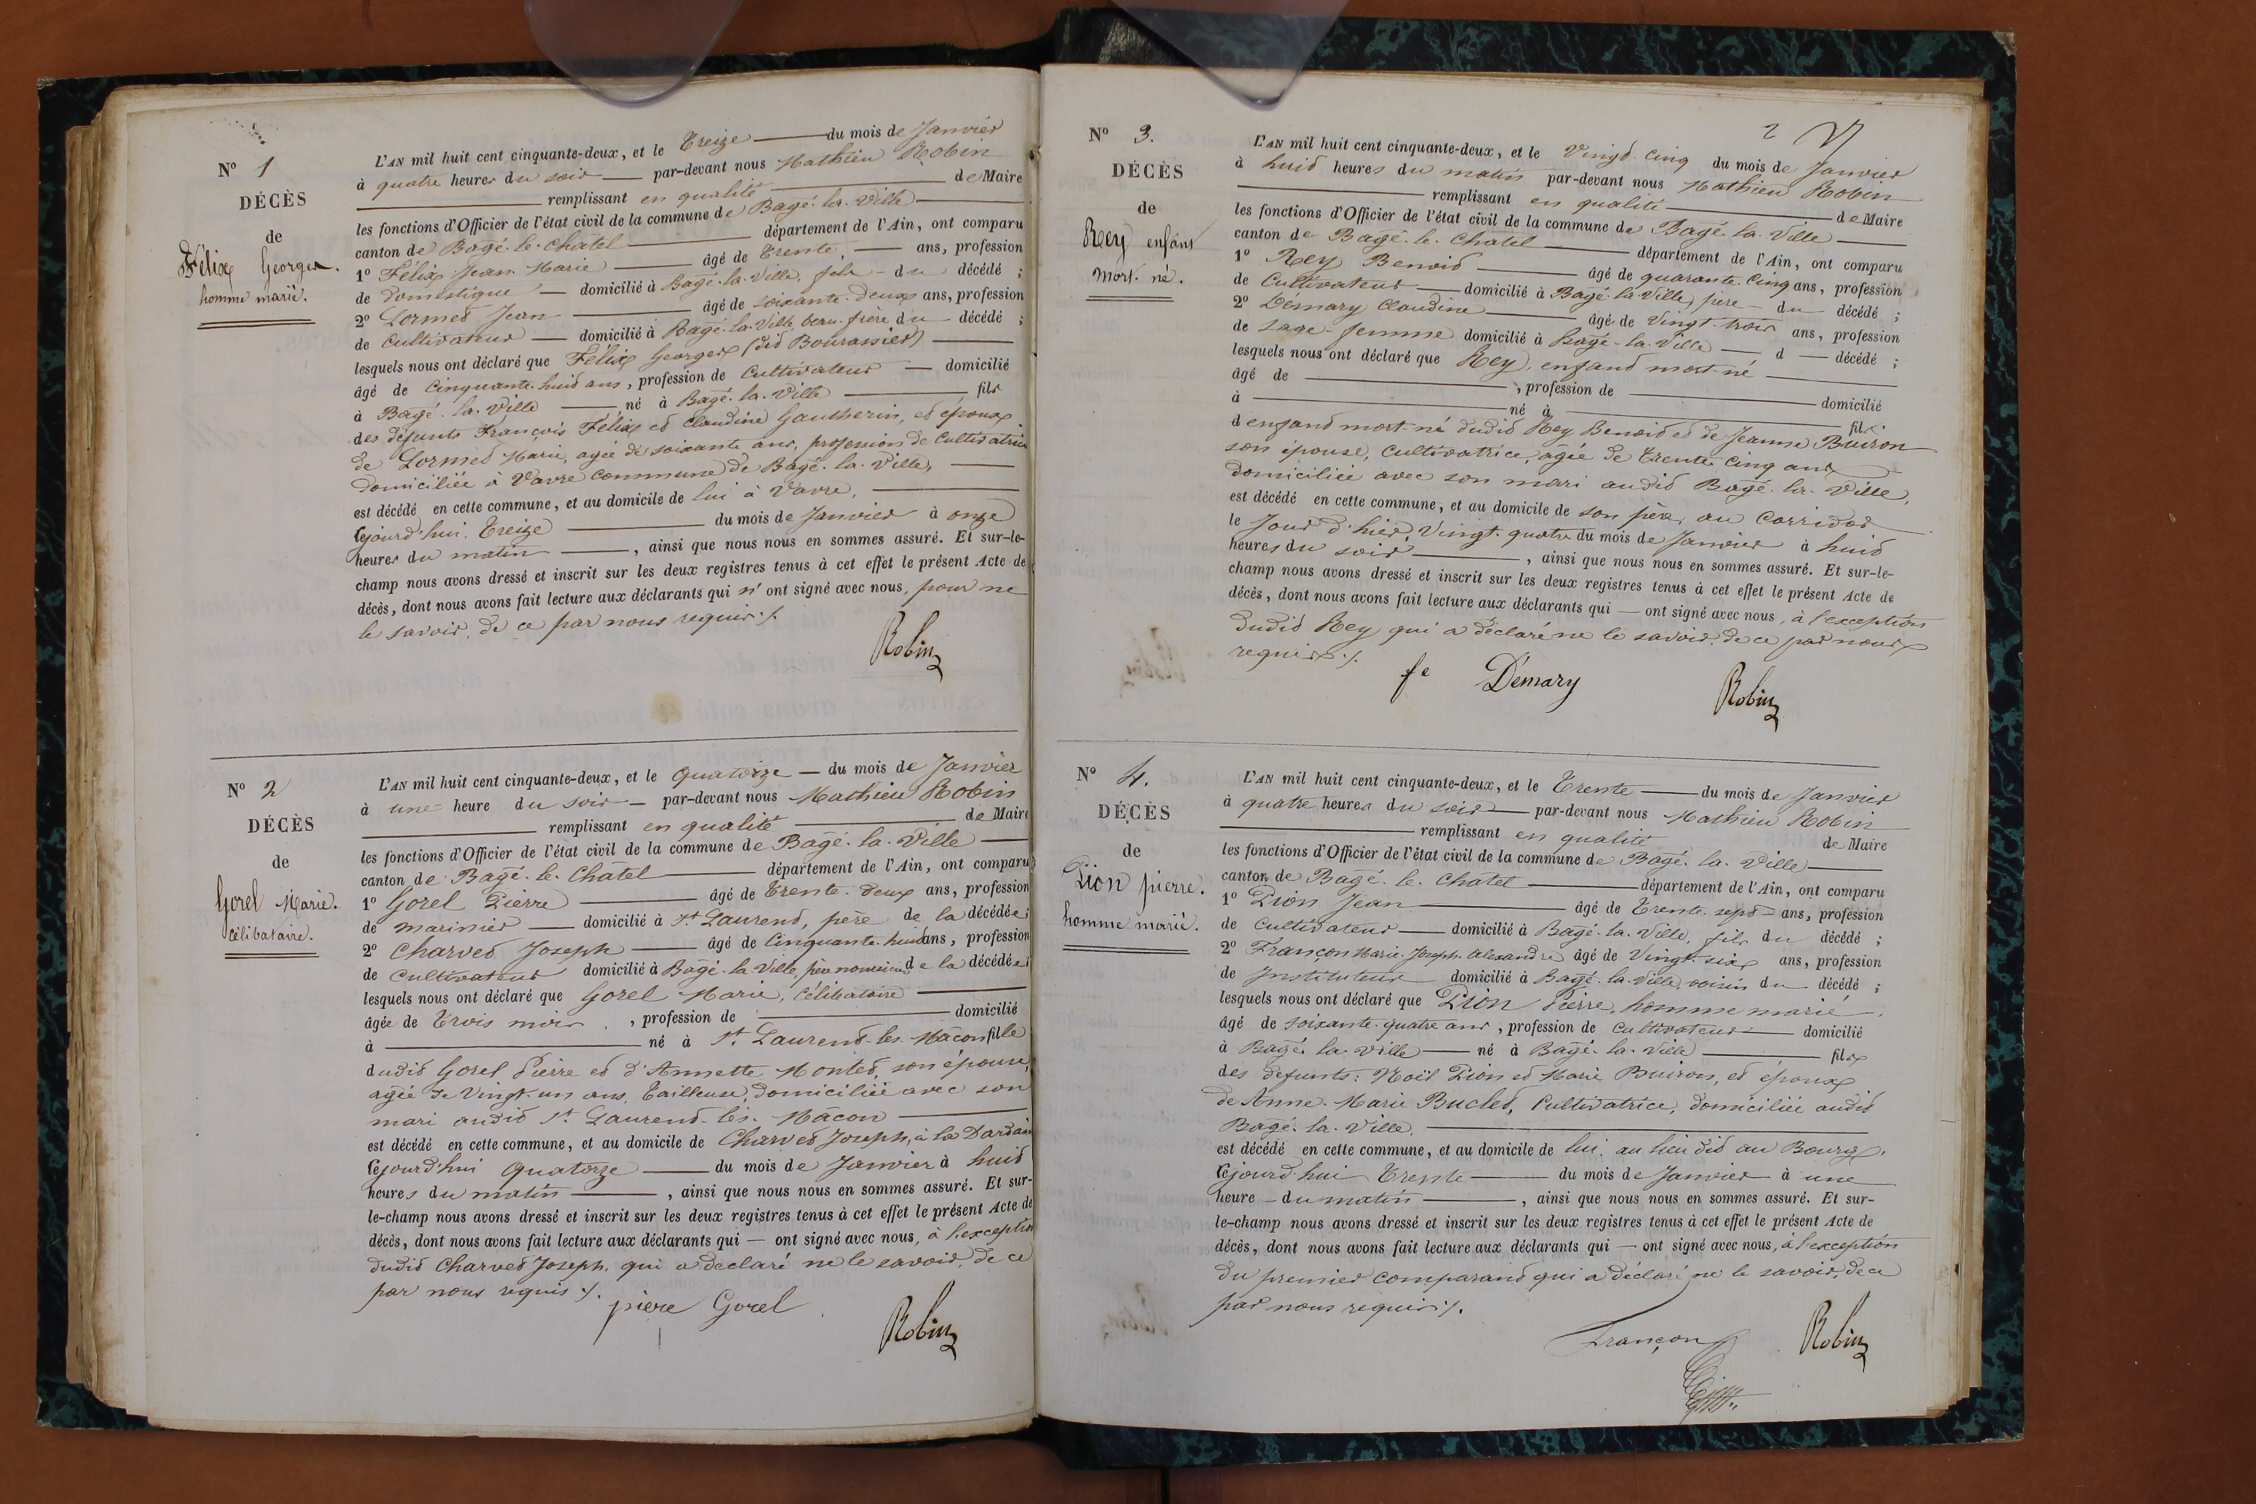 N° 1
DÉCÈS
de
Félix Georges.
homme marié.
L'AN mil huit cent cinquante-deux, et le Treize du mois de Janvier
à quatre heures du soir par-devant nous Mathieu Robin
remplissant en qualité de Maire
les fonctions d'Officier de l'état civil de la commune de Bagé-la-Ville
canton de Bagé-le-Chatel département de l'Ain, ont comparu
1° Félix Jean Marie âgé de Trente, ans, profession
de domestique domicilié à Bagé-la-Ville, fils du décédé ;
2° Lormet Jean âgé de soixante-deux ans, profession
de Cultivateur domicilié à Bagé-la-Ville, beau-frère du décédé ;
lesquels nous ont déclaré que Félix Georges (dit Bourassier)
âgé de Cinquante-huit ans, profession de Cultivateur domicilié
à Bagé-la-Ville né à Bagé-la-Ville fils
des défunts François Félix et Claudine Gautherin, et époux
de Lormet Marie, agée de soixante ans, profession de Cultivatrice
domiciliée à Vavre commune de Bagé-la-Ville,
est décédé en cette commune, et au domicile de lui à Vavre,
Cejourd'hui Treize du mois de Janvier à onze
heures du matin, ainsi que nous nous en sommes assuré. Et sur-le-
champ nous avons dressé et inscrit sur les deux registres tenus à cet effet le présent Acte de
décès, dont nous avons fait lecture aux déclarants qui n'ont signé avec nous, pour ne
le savoir, de ce par nous requis ./.
Robin
N° 2
DÉCÈS
de
Gorel Marie.
célibataire.
L'AN mil huit cent cinquante-deux, et le quatorze du mois de Janvier
à une heure du soir par-devant nous Mathieu Robin
remplissant en qualité de Maire
les fonctions d'Officier de l'état civil de la commune de Bagé-la-Ville
canton de Bagé-le-Châtel département de l'Ain, ont comparu
1° Gorel Pierre âgé de Trente-deux ans, profession
de marinier domicilié à St Laurent, père de la décédée ;
2° Charvet Joseph âgé de Cinquante-huit ans, profession
de Cultivateur domicilié à Bagé-la-Ville, père nourricier de la décédée ;
lesquels nous ont déclaré que Gorel Marie, célibataire
âgée de Trois mois, profession de domicilié
à né à St Laurent-lès-Mâcon fille
dudit Gorel Pierre et d'Annette Montet, son épouse,
agée de Vingt-un ans, Tailleuse, domiciliée avec son
mari audit St Laurent-lès-Mâcon
est décédé en cette commune, et au domicile de Charvet Joseph, à la
Cejourd'hui quatorze du mois de Janvier à huit
heures du matin, ainsi que nous nous en sommes assuré. Et sur-
le-champ nous avons dressé et inscrit sur les deux registres tenus à cet effet le présent Acte de
décès, dont nous avons fait lecture aux déclarants qui ont signé avec nous, à l'exception
dudit Charvet Joseph, qui a déclaré ne le savoir, de ce
par nous requis ./.
piere Gorel
Robin
2
N° 3.
DÉCÈS
de
Rey enfant
mort-né.
L'AN mil huit cent cinquante-deux, et le Vingt-Cinq du mois de Janvier
à huit heures du matin par-devant nous Mathieu Robin
remplissant en qualité de Maire
les fonctions d'Officier de l'état civil de la commune de Bagé-la-Ville
canton de Bagé-le-Chatel département de l'Ain, ont comparu
1° Rey Benoit âgé de quarante-Cinq ans, profession
de Cultivateur domicilié à Bagé-la-Ville, père du décédé ;
2° Démary Claudine âgé de Vingt-trois ans, profession
de Sage-femme domicilié à Bagé-la-Ville d décédé ;
lesquels nous ont déclaré que Rey, enfant mort-né
âgé de, profession de domicilié
à né à fil
d enfant mort-né dudit Rey Benoit et de Jeanne Buiron
son épouse, Cultivatrice, agée de Trente-Cinq ans
domiciliée avec son mari audit Bagé-la-Ville,
est décédé en cette commune, et au domicile de son père, au Corridor
le Jour d'hier, Vingt-quatre du mois de Janvier à huit
heures du soir, ainsi que nous nous en sommes assuré. Et sur-le-
champ nous avons dressé et inscrit sur les deux registres tenus à cet effet le présent Acte de
décès, dont nous avons fait lecture aux déclarants qui ont signé avec nous, à l'exception
dudit Rey qui a déclaré ne le savoir, de ce par nous
requis ./.
fe Démary
Robin
N° 4.
DÉCÈS
de
Pion pierre.
homme marié.
L'AN mil huit cent cinquante-deux, et le Trente du mois de Janvier
à quatre heures du soir par-devant nous Mathieu Robin
remplissant en qualité de Maire
les fonctions d'Officier de l'état civil de la commune de Bagé-la-Ville
canton de Bagé-le-Chatel département de l'Ain, ont comparu
1° Pion Jean âgé de Trente-sept ans, profession
de Cultivateur domicilié à Bagé-la-Ville, fils du décédé ;
2° Françon Marie Joseph Alexandre âgé de Vingt-six ans, profession
de Instituteur domicilié à Bagé-la-Ville voisin du décédé ;
lesquels nous ont déclaré que Pion Pierre, homme marié.
âgé de soixante-quatre ans, profession de Cultivateur domicilié
à Bagé-la-Ville né à Bagé-la-Ville fils
des défunts : Noël Pion et Marie Buiron, et époux
de Anne-Marie Buclet, Cultivatrice, domiciliée audit
Bagé-la-Ville.
est décédé en cette commune, et au domicile de lui, au lieu dit au Bourg,
Cejourd'hui Trente du mois de Janvier à une
heure du matin, ainsi que nous nous en sommes assuré. Et sur-
le-champ nous avons dressé et inscrit sur les deux registres tenus à cet effet le présent Acte de
décès, dont nous avons fait lecture aux déclarants qui ont signé avec nous, à l'exception
du premier comparant qui a déclaré ne le savoir, de ce
par nous requis ./.
Françon
Robin